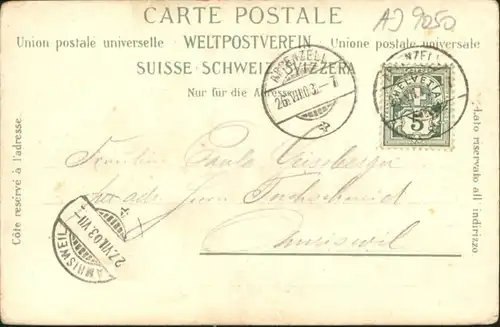 CARTE POSTALE
AJ 9050
Union postale universelle WELTPOSTVEREIN Unione postale universale
SUISSE SCHWEIZ SVIZZERA
Nur für die Adresse
APPENZELL
26.VII.03. - 7
NZELL
HELVETIA
5
Côte reservé à l'adresse.
Lato riservato all indirizzo
Fräulein Paula
Amriswil
AMRISWEIL
27.VII.03.VII -